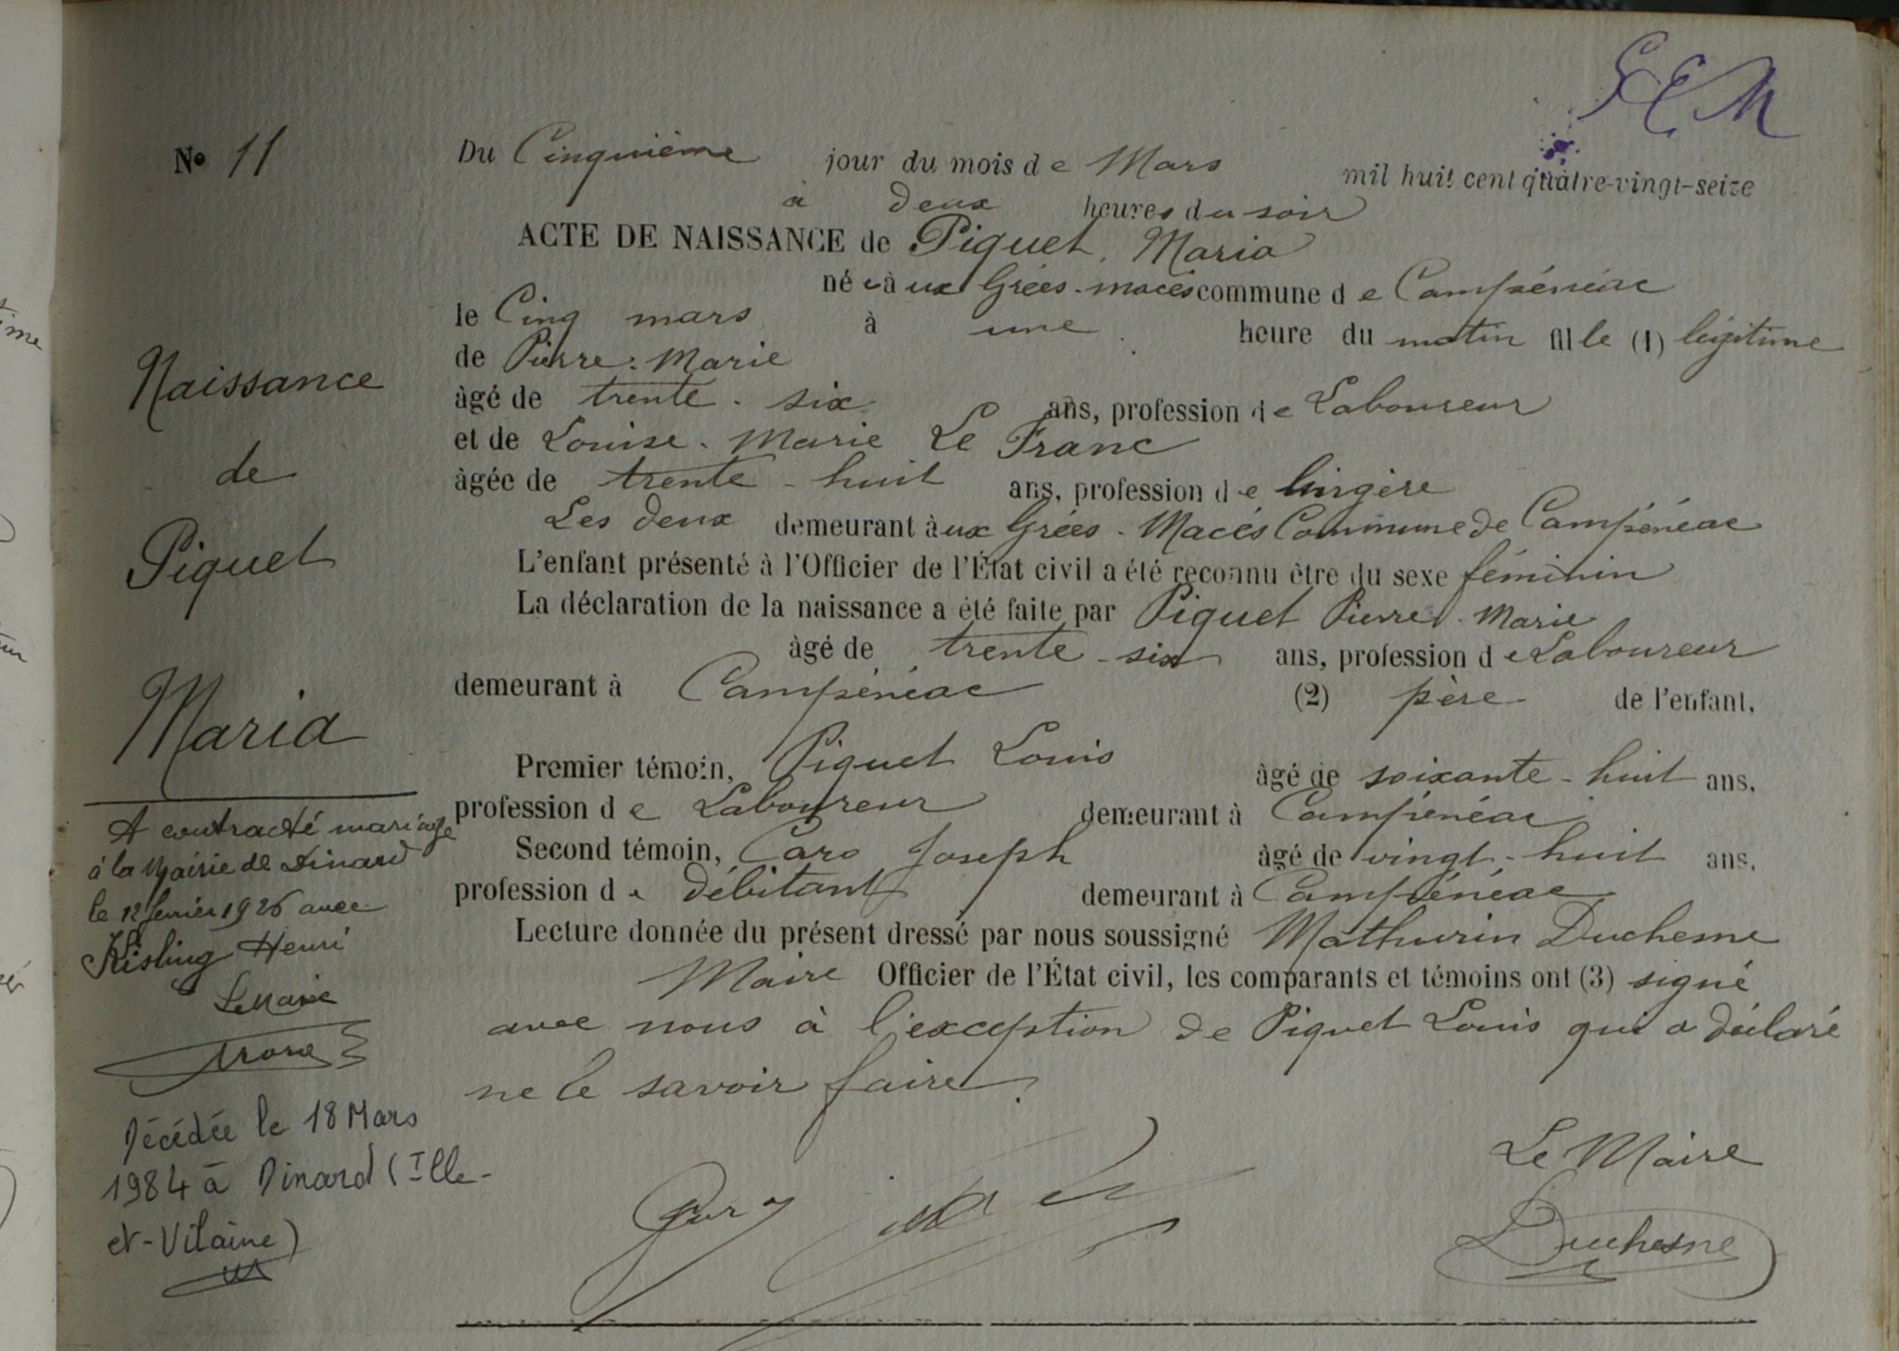 G E M
No 11
Du Cinquième jour du mois de Mars mil huit cent quatre-vingt-seize
à deux heures du soir
ACTE DE NAISSANCE de Piquet, Maria
née à ux Grées-macés commune de Campénéac
le Cinq mars à une heure du matin fille (1) légitime
de Pierre-Marie
âgé de trente-six ans, profession de Laboureur
et de Louise-Marie Le Franc
âgée de trente-huit ans, profession de lingère
Les deux demeurant à ux Grées-Macés Commune de Campénéac
L'enfant présenté à l'Officier de l'État civil a été reconnu être du sexe féminin
La déclaration de la naissance a été faite par Piquet Pierre-Marie
âgé de trente-six ans, profession de Laboureur
demeurant à Campénéac (2) père de l'enfant.
Premier témoin, Piquet Louis âgé de soixante-huit ans,
profession de Laboureur demeurant à Campénéac
Second témoin, Caro Joseph âgé de vingt-huit ans,
profession de débitant demeurant à Campénéac
Lecture donnée du présent dressé par nous soussigné Mathurin Duchesne
Maire Officier de l'État civil, les comparants et témoins ont (3) signé
avec nous à l'exception de Piquet Louis qui a déclaré
ne le savoir faire.
Le Maire
Duchesne
Naissance
de
Piquet
Maria
A contracté mariage
à la Mairie de Dinard
le 12 février 1926 avec
Kisling Henri
Le Maire
Décédée le 18 Mars
1984 à Dinard (Ille-
et-Vilaine)